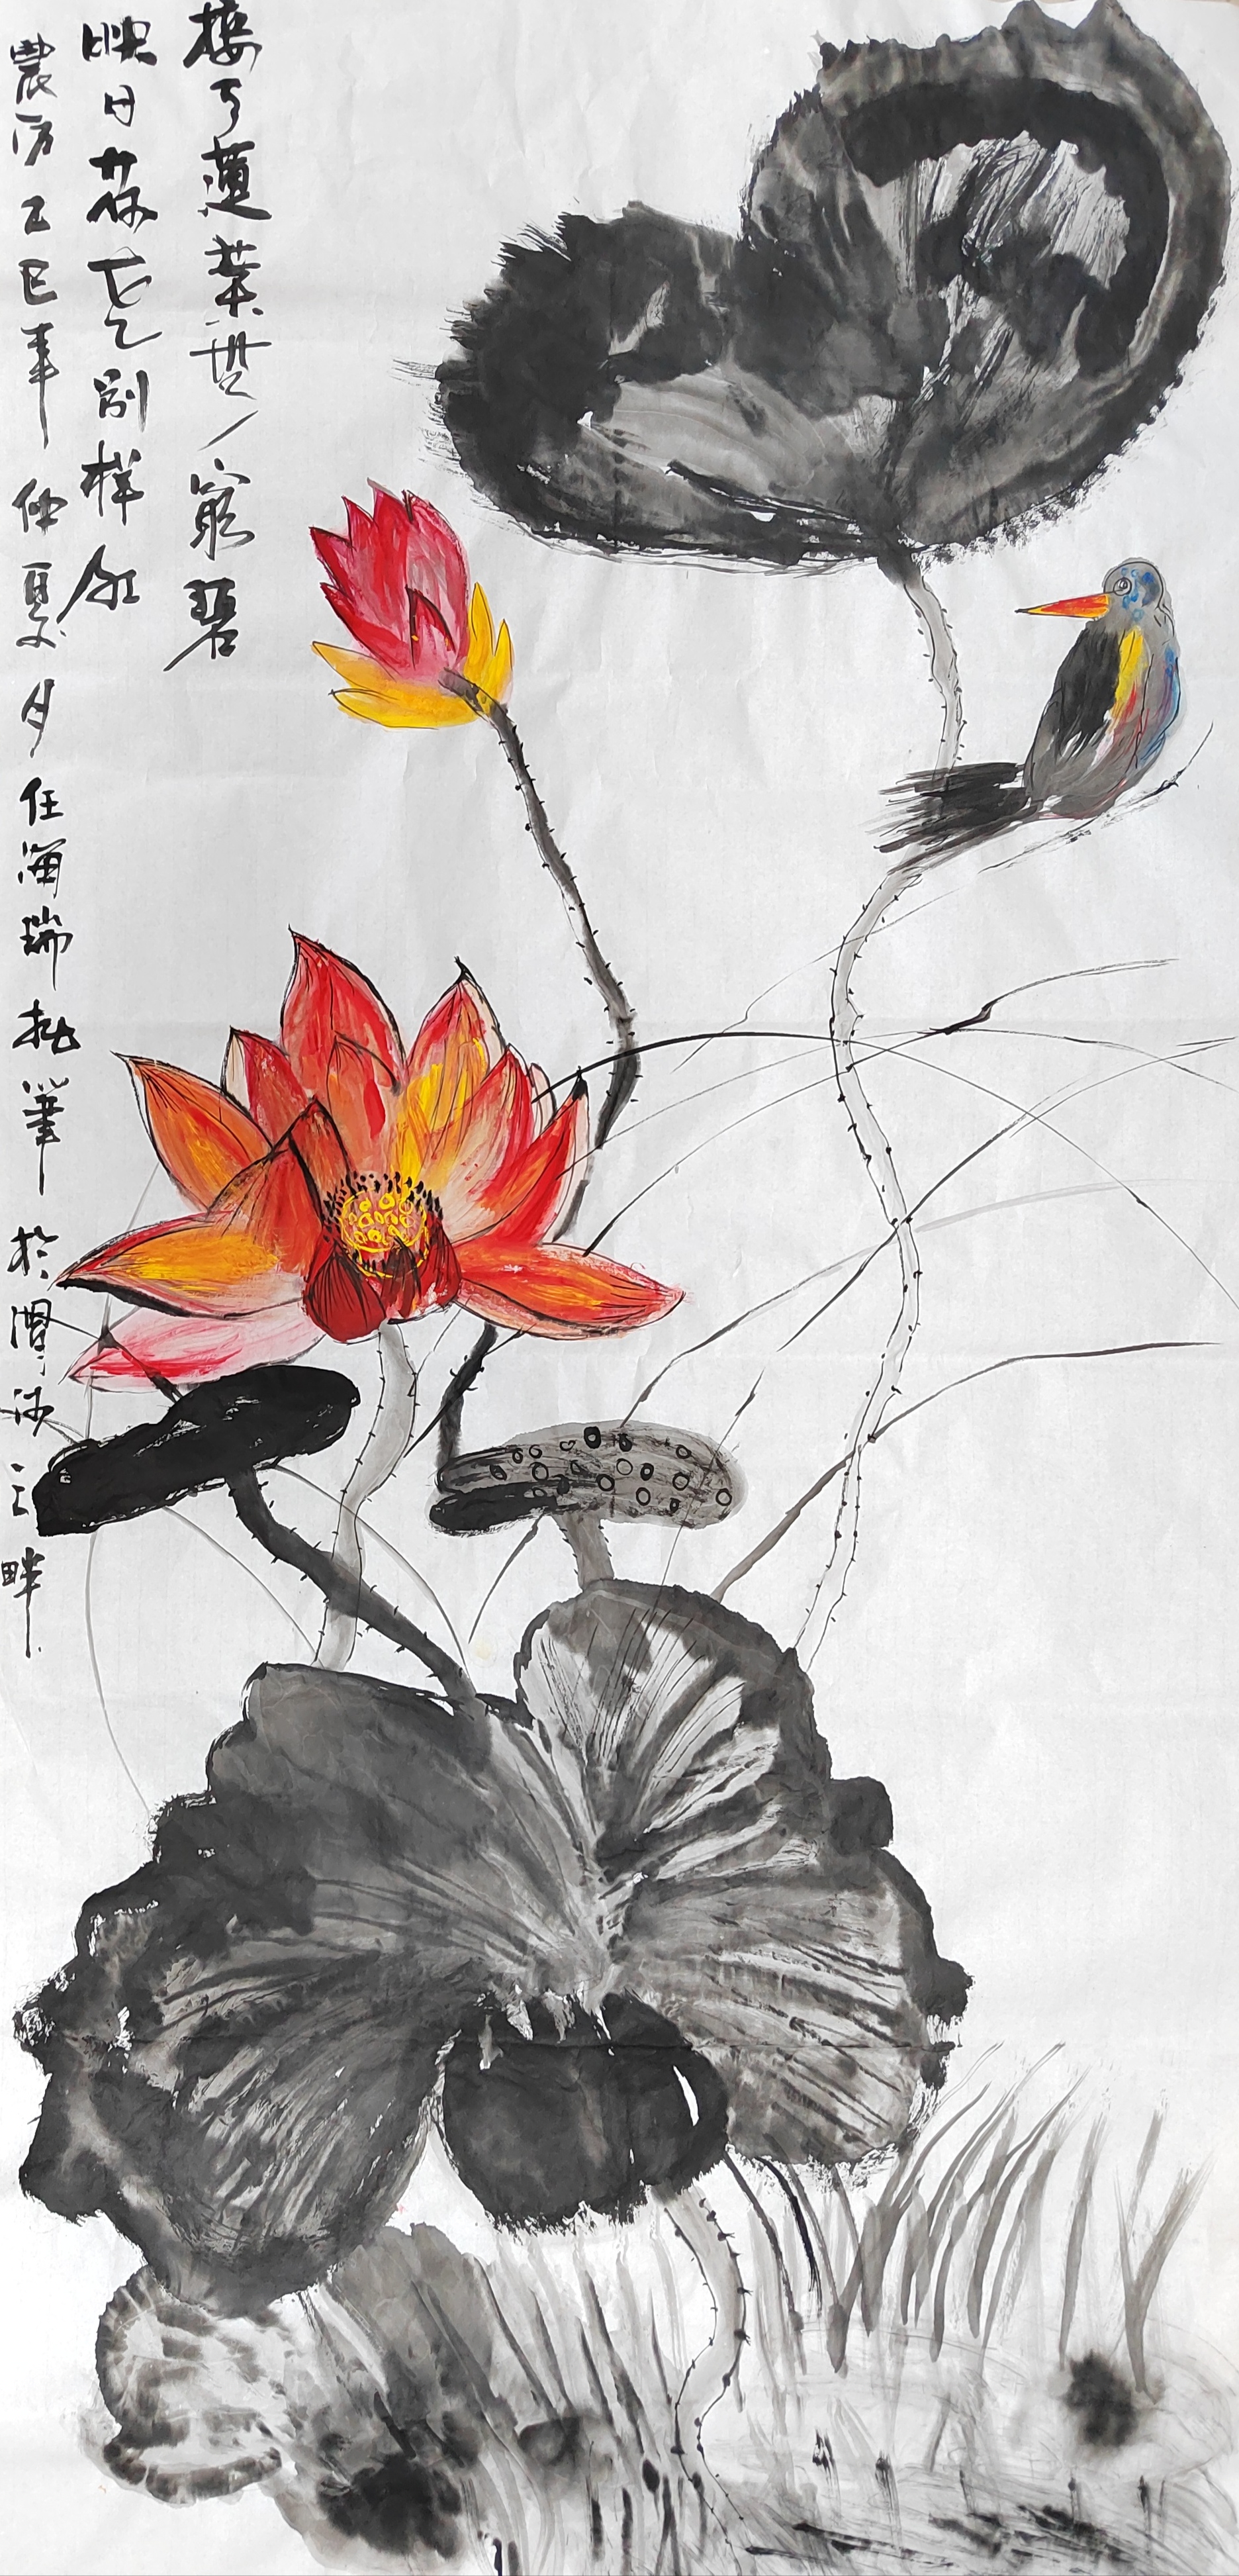 接天蓮葉無窮碧
映日荷花别样红
農历乙巳年仲夏月任海瑞拙筆於渭河之畔